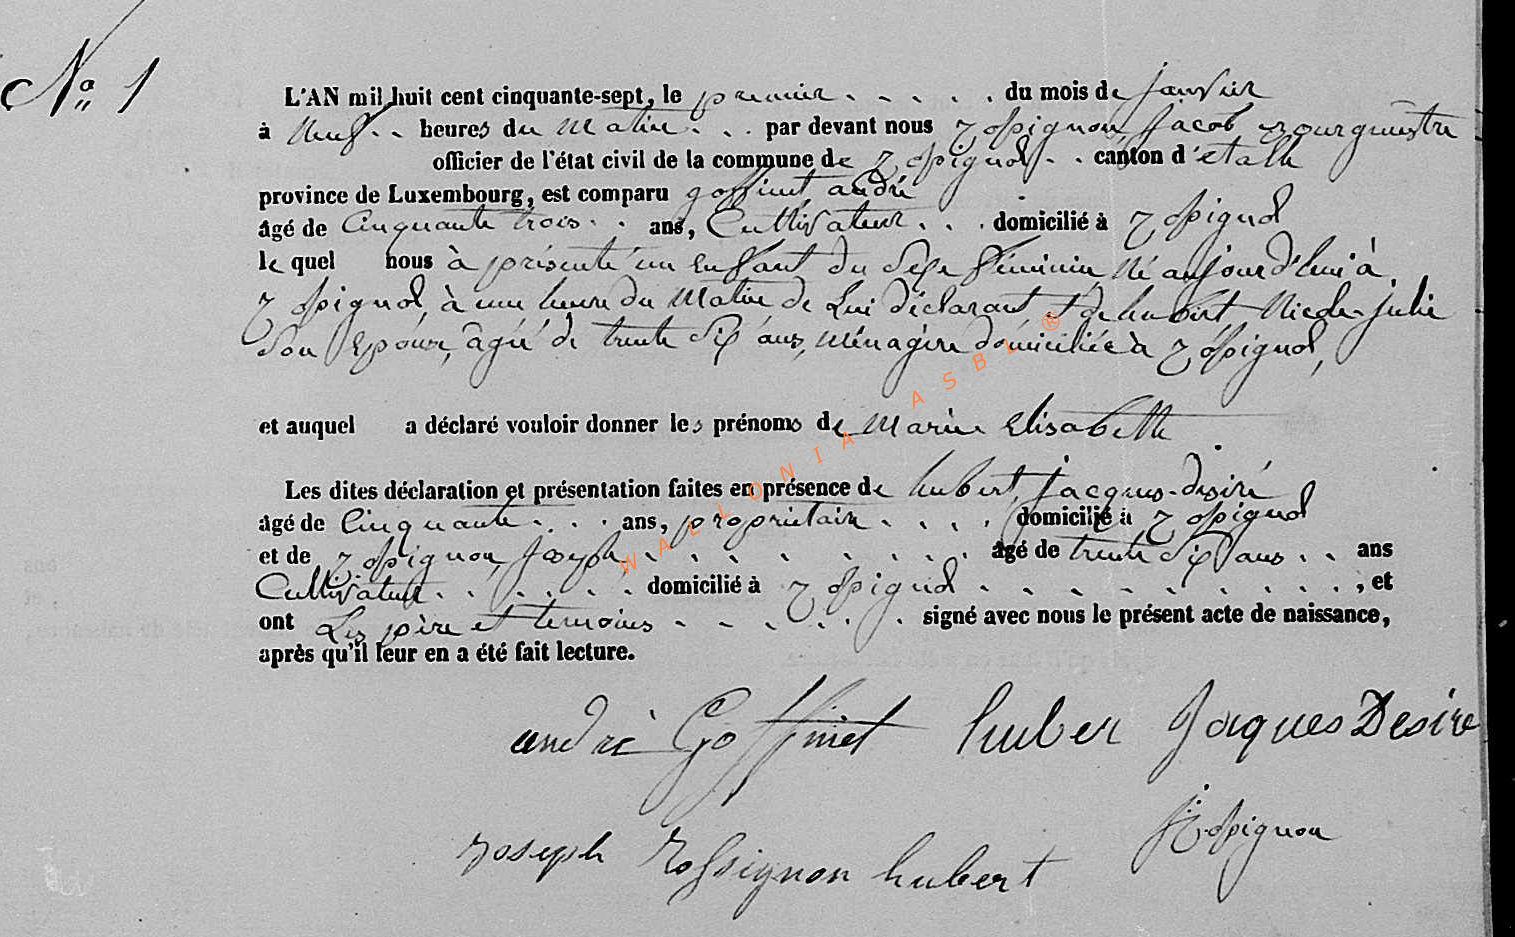 No 1
L'AN mil huit cent cinquante-sept, le premier . . . . . du mois de janvier
à neuf . . heures du matin . . . par devant nous Rossignon, jacob, Bourgmestre
officier de l'état civil de la commune de Rossignol . . canton d'étalle
province de Luxembourg, est comparu goffinet, andré
âgé de Cinquante trois . . ans, Cultivateur . . . domicilié à Rossignol
le quel nous à présenté un enfant du Sexe féminin, né aujourd'hui à
Rossignol, à une heure du matin de Lui déclarant & de hubert Julie
Son Epouse, âgée de trente Six ans, Ménagère domiciliée à Rossignol,
et auquel a déclaré vouloir donner les prénoms de Marie Elisabeth
Les dites déclaration et présentation faites en présence de hubert, jacques-desiré
âgé de Cinquante . . . ans, propriétaire . . . . domicilié à Rossignol
et de Rossignon, Joseph . . . . . . . . . âgé de trente Six ans . . ans
Cultivateur . . . . . . domicilié à Rossignol . . . . . . . . . . , et
ont Les père et témoins . . . . . . signé avec nous le présent acte de naissance,
après qu'il leur en a été fait lecture.
andré Goffinet huber Jaques Desire
J Rossignon
Joseph Rossignon hubert
WALLONIA ASBL ®